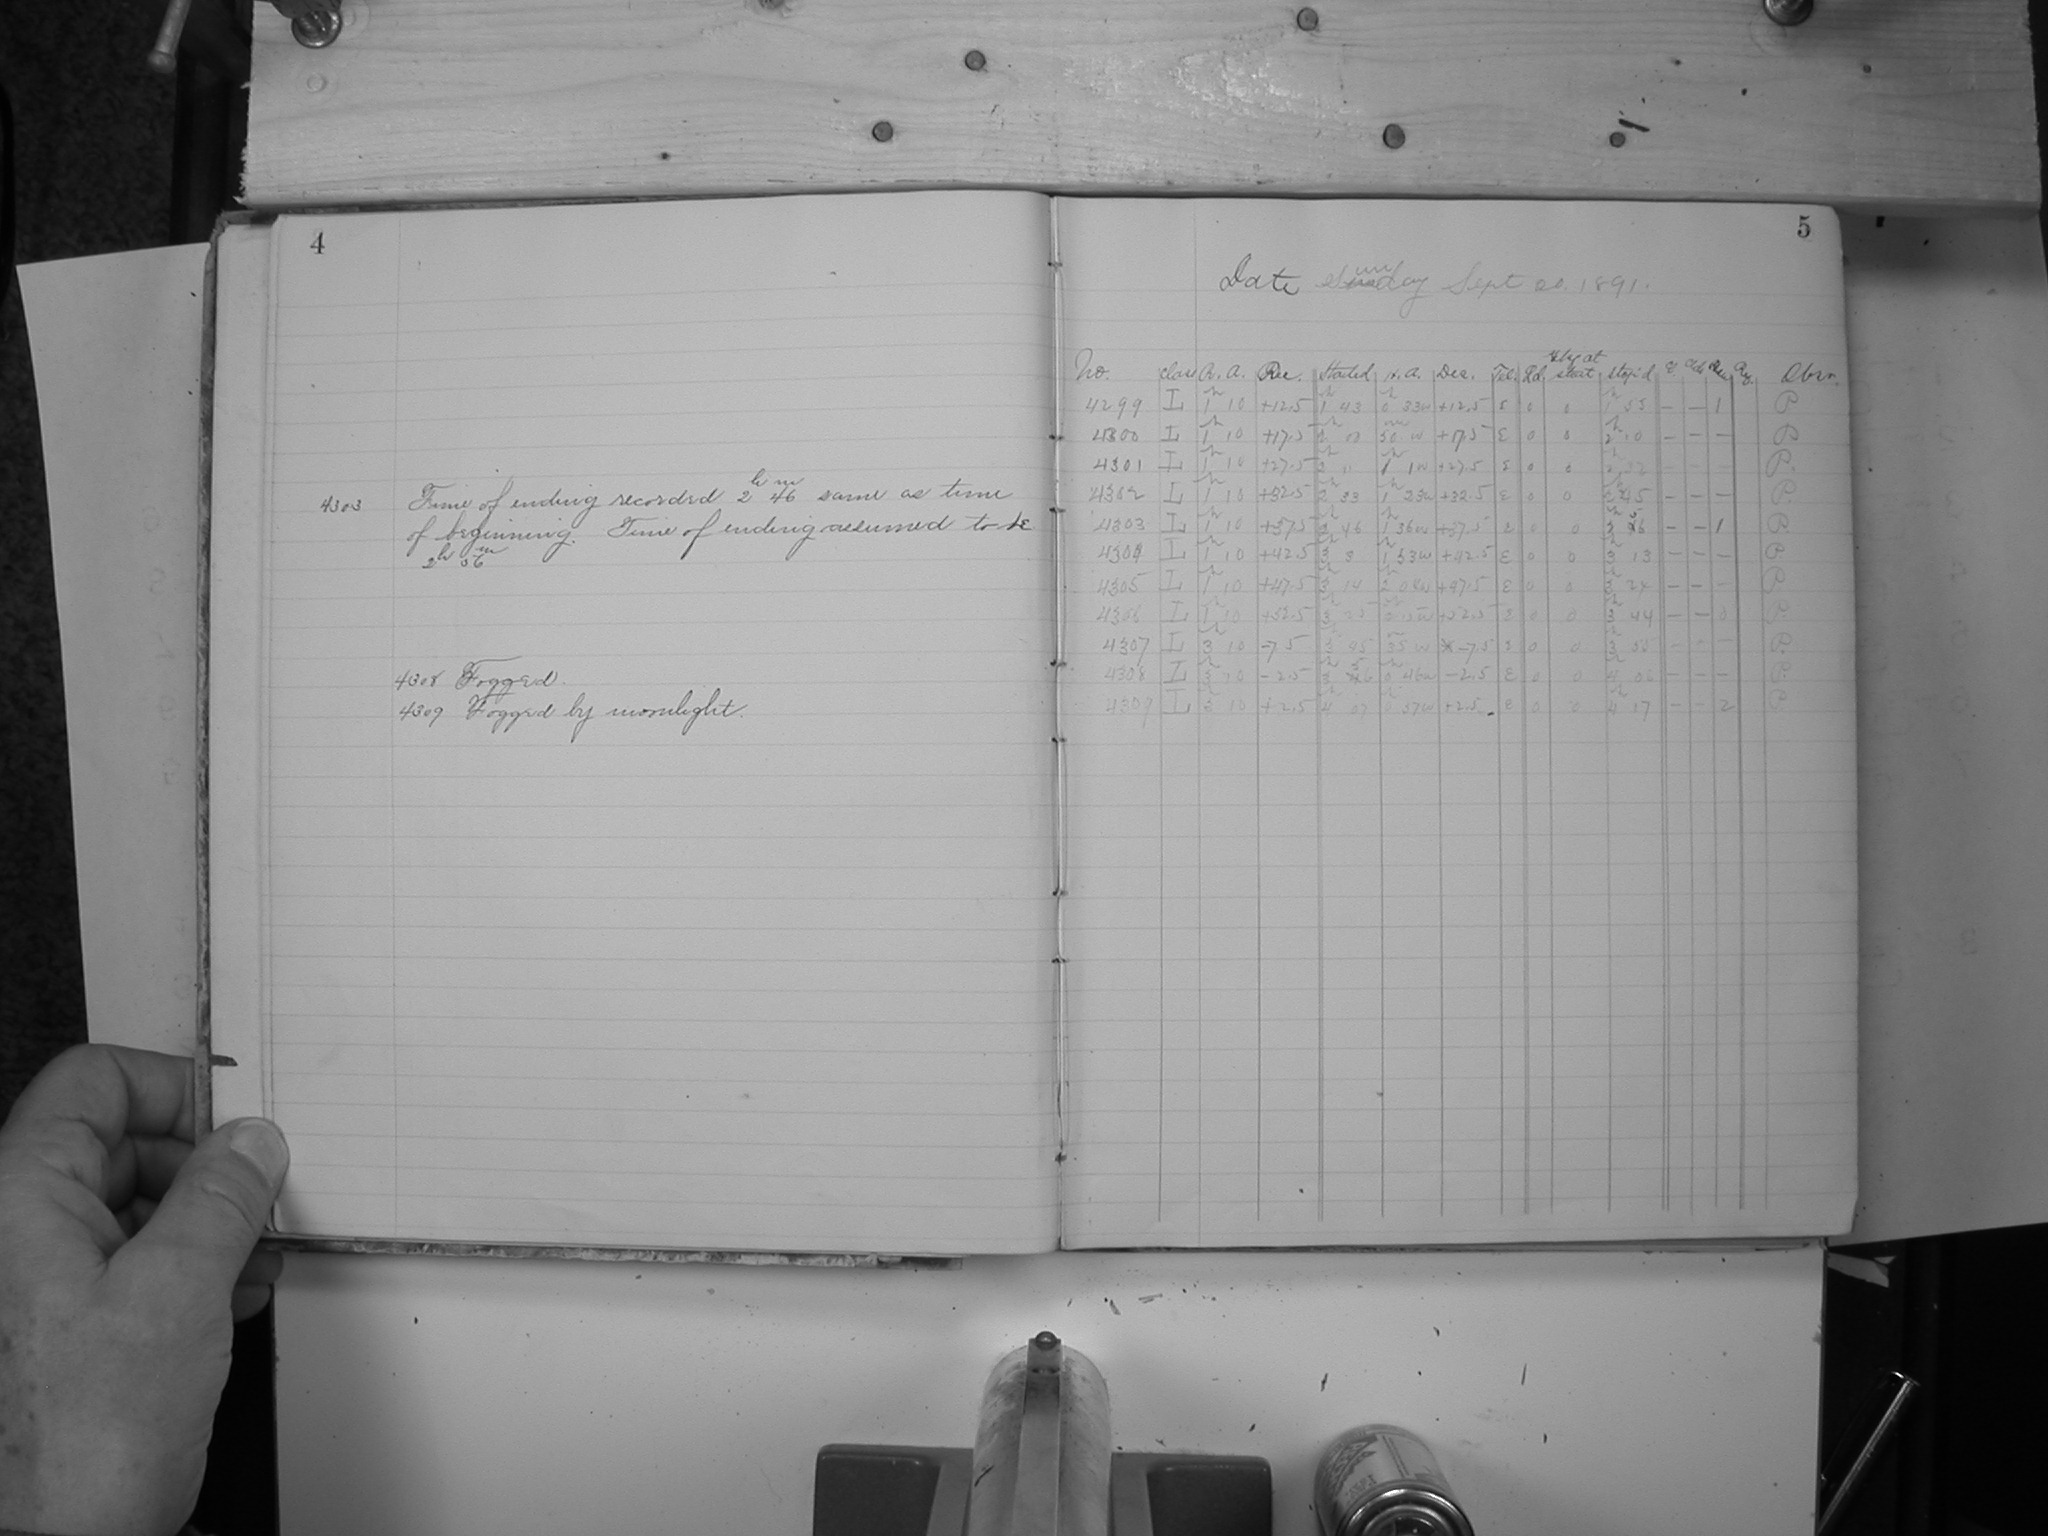 4
4303 Time of ending recorded 2h 46m same as time
of beginning. Time of ending assumed to be
2h 56m
4308 Fogged.
4309 Fogged by moonlight.
5
Date Sunday Sept 20. 1891.
No. Class R. A. Dec. Started H. A. Dec. Tel. Rd. start Stop'd Obsr.
4299 L 1h 10 +12.5 1h 43 0h 33w +12.5 E 0 0 1h 55 – – 1 P.
4300 L 1h 10 +17.5 50m w +17.5 E 0 0 2h 10 – – – P.
4301 L 1h 10 +27.5 2h 11 1h 1w +27.5 E 0 0 – – – P.
4302 L 1h 10 +32.5 2h 33 1h 23w +32.5 E 0 0 2h 45 – – – P.
4303 L 1h 10 +37.5 2h 46 1h 36w +37.5 E 0 0 – – 1 P.
4304 L 1h 10 +42.5 3h 3 1h 53w +42.5 E 0 0 3h 13 – – – P.
4305 L 1h 10 +47.5 3h 14 +47.5 E 0 0 3h 24 – – – P.
4306 L 1h 10 +52.5 +52.5 E 0 0 3h 44 – – P.
4307 L 3h 10 -7.5 3h 45 35m w -7.5 E 0 0 3h 55 – – – P.
4308 L 3h 10 -2.5 0h 46w -2.5 E 0 0 – – – P.
4309 L 3h 10 +2.5 4h 07 0h 57w +2.5 E 0 0 4h 17 – – 2 P.